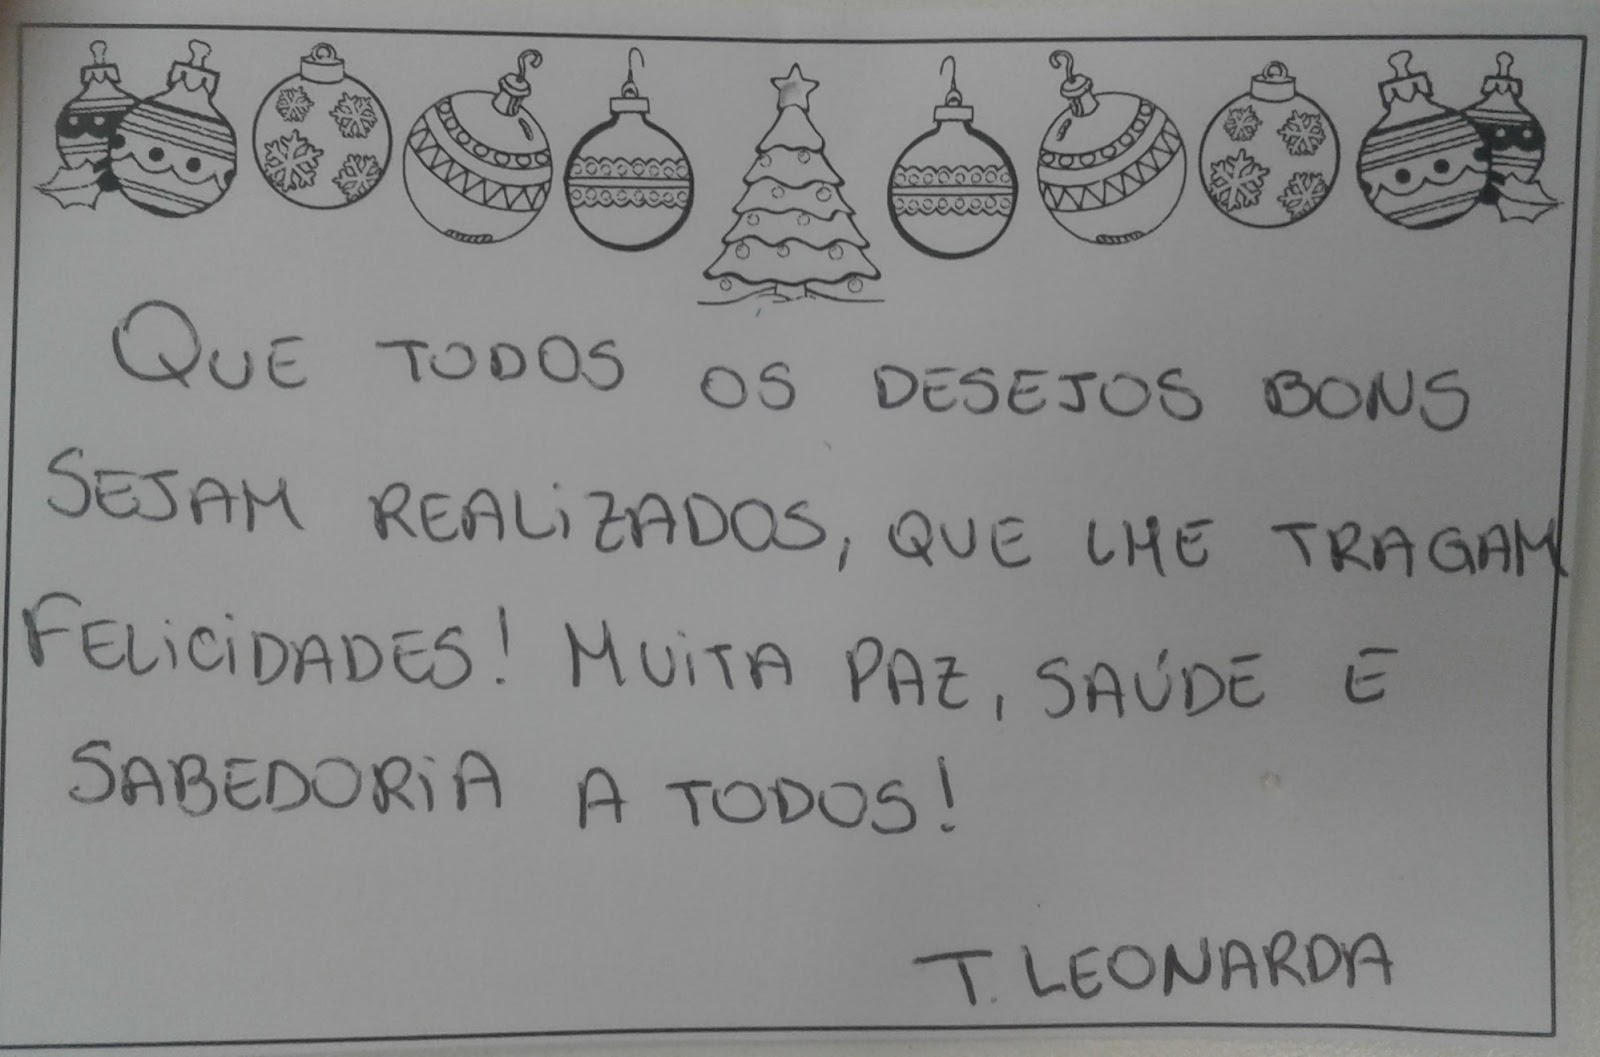 QUE TODOS OS DESEJOS BONS
SEJAM REALIZADOS, QUE LHE TRAGAM
FELICIDADES! MUITA PAZ, SAÚDE E
SABEDORIA A TODOS!
T. LEONARDA